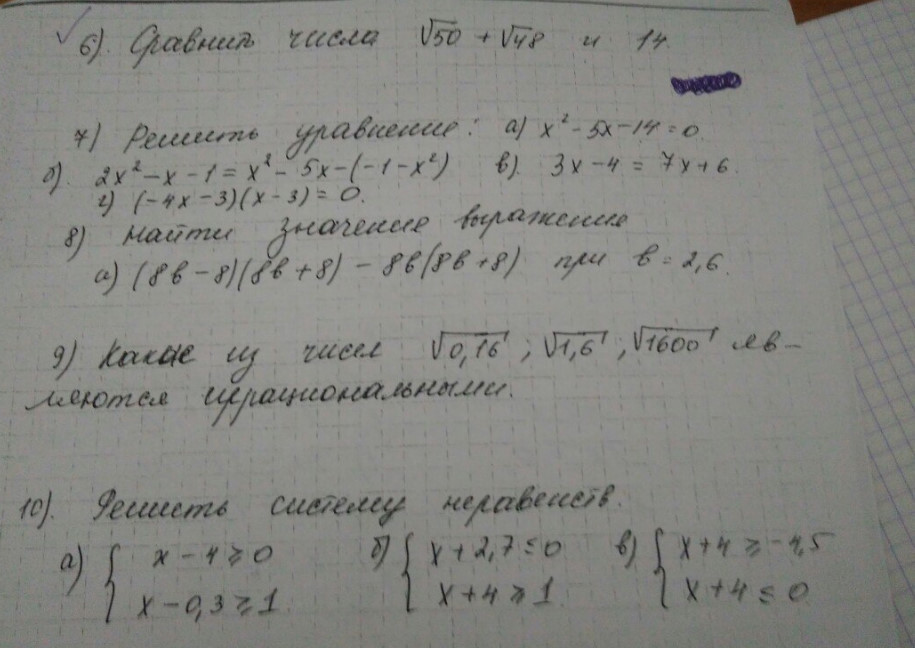 6). Сравнить числа √50 + √48 и 14
7) Решить уравнение: а) x² - 5x - 14 = 0
б). 2x² - x - 1 = x² - 5x - (-1 - x²) в). 3x - 4 = 7x + 6.
г) (-4x - 3)(x - 3) = 0.
8) Найти значение выражение
а) (8в - 8)(8в + 8) - 8в(8в + 8) при в = 2,6.
9) Какие из чисел √0,16 ; √1,6 ; √1600 яв-
ляются иррациональными.
10). Решить систему неравенств.
а) { x - 4 ≥ 0 б) { x + 2,7 ≤ 0 в) { x + 4 ≥ -4,5
x - 0,3 ≥ 1 x + 4 ≥ 1 x + 4 ≤ 0